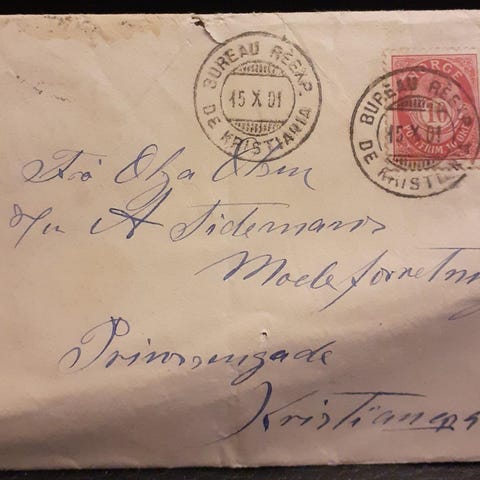 BUREAU REEXP.
15 X 01
DE KRISTIANIA
NORGE
10
BUREAU REEXP.
15 X 01
DE KRISTIANIA
Frö Olga Olsen
A Tidemans
Modeforretning
Prinsensgade